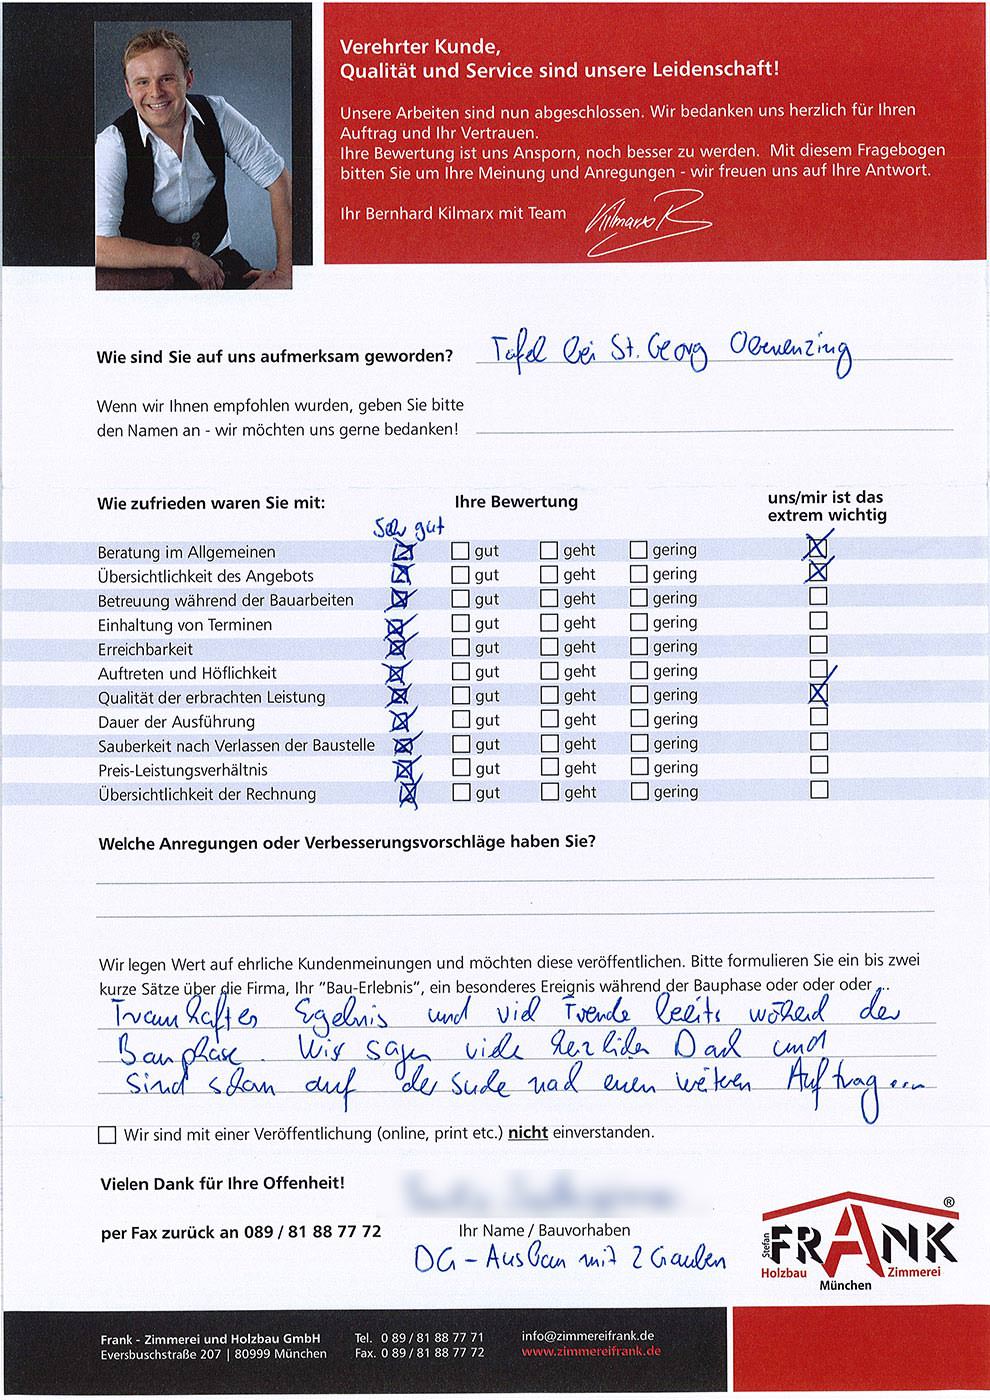 Verehrter Kunde,
Qualität und Service sind unsere Leidenschaft!
Unsere Arbeiten sind nun abgeschlossen. Wir bedanken uns herzlich für Ihren
Auftrag und Ihr Vertrauen.
Ihre Bewertung ist uns Ansporn, noch besser zu werden. Mit diesem Fragebogen
bitten Sie um Ihre Meinung und Anregungen - wir freuen uns auf Ihre Antwort.
Ihr Bernhard Kilmarx mit Team Kilmarx B
Wie sind Sie auf uns aufmerksam geworden? Tafel bei St. Georg Obermenzing
Wenn wir Ihnen empfohlen wurden, geben Sie bitte
den Namen an - wir möchten uns gerne bedanken!
Wie zufrieden waren Sie mit: Ihre Bewertung uns/mir ist das
extrem wichtig
Sehr gut
Beratung im Allgemeinen gut geht gering
Übersichtlichkeit des Angebots gut geht gering
Betreuung während der Bauarbeiten gut geht gering
Einhaltung von Terminen gut geht gering
Erreichbarkeit gut geht gering
Auftreten und Höflichkeit gut geht gering
Qualität der erbrachten Leistung gut geht gering
Dauer der Ausführung gut geht gering
Sauberkeit nach Verlassen der Baustelle gut geht gering
Preis-Leistungsverhältnis gut geht gering
Übersichtlichkeit der Rechnung gut geht gering
Welche Anregungen oder Verbesserungsvorschläge haben Sie?
Wir legen Wert auf ehrliche Kundenmeinungen und möchten diese veröffentlichen. Bitte formulieren Sie ein bis zwei
kurze Sätze über die Firma, Ihr "Bau-Erlebnis", ein besonderes Ereignis während der Bauphase oder oder oder ...
Traumhaftes Ergebnis und viel Freude bereits während der
Bauphase. Wir sagen vielen herzlichen Dank und
sind schon auf der Suche nach einem weiteren Auftrag...
Wir sind mit einer Veröffentlichung (online, print etc.) nicht einverstanden.
Vielen Dank für Ihre Offenheit!
per Fax zurück an 089 / 81 88 77 72 Ihr Name / Bauvorhaben
DG-Ausbau mit 2 Gauben
Stefan FRANK ®
Holzbau Zimmerei
München
Frank - Zimmerei und Holzbau GmbH Tel. 0 89 / 81 88 77 71 info@zimmereifrank.de
Eversbuschstraße 207 | 80999 München Fax. 0 89 / 81 88 77 72 www.zimmereifrank.de